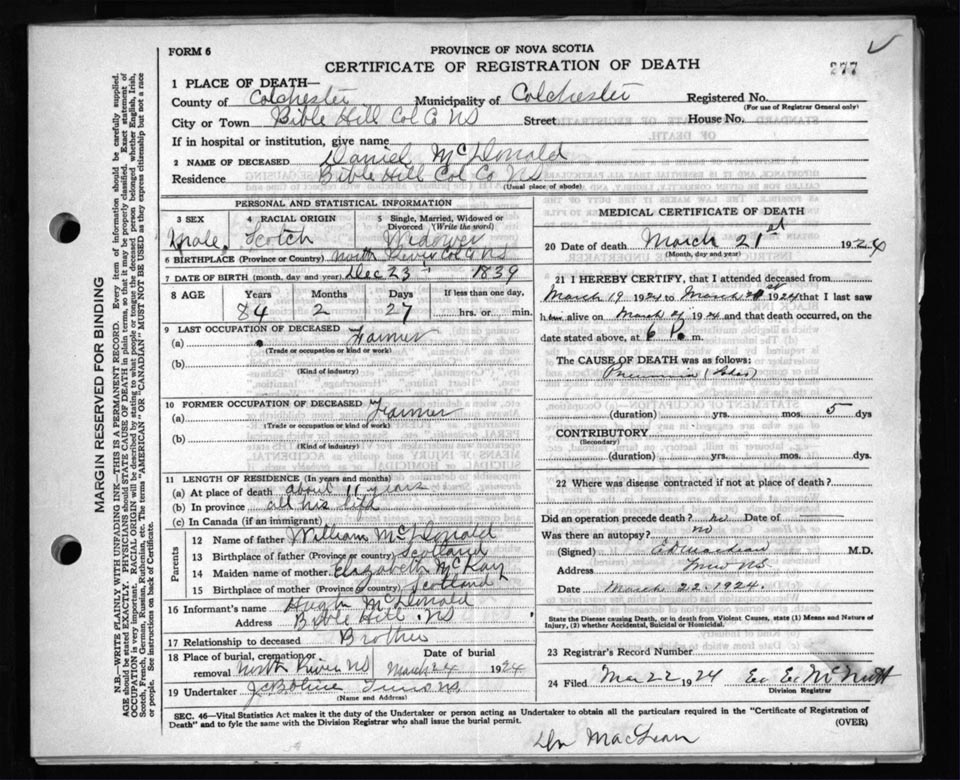 FORM 6
PROVINCE OF NOVA SCOTIA
CERTIFICATE OF REGISTRATION OF DEATH
277
1 PLACE OF DEATH—
County of Colchester Municipality of Colchester Registered No.
(For use of Registrar General only)
City or Town Bible Hill Col Co NS Street House No.
If in hospital or institution, give name
2 NAME OF DECEASED Daniel McDonald
Residence Bible Hill Col Co NS
(Usual place of abode)
PERSONAL AND STATISTICAL INFORMATION
3 SEX 4 RACIAL ORIGIN 5 Single, Married, Widowed or Divorced (Write the word)
Male. Scotch Widower
6 BIRTHPLACE (Province or Country) North River Col Co NS
7 DATE OF BIRTH (month, day and year) Dec 23 1839
8 AGE Years Months Days If less than one day,
84 2 27 hrs. or min.
9 LAST OCCUPATION OF DECEASED
(a) Farmer
(Trade or occupation or kind of work)
(b)
(Kind of industry)
10 FORMER OCCUPATION OF DECEASED
(a) Farmer
(Trade or occupation or kind of work)
(b)
(Kind of industry)
11 LENGTH OF RESIDENCE (In years and months)
(a) At place of death about years
(b) In province all his life
(c) In Canada (if an immigrant)
Parents
12 Name of father William McDonald
13 Birthplace of father (Province or country) Scotland
14 Maiden name of mother Elizabeth McKay
15 Birthplace of mother (Province or country) Scotland
16 Informant's name Hugh McDonald
Address Bible Hill NS
17 Relationship to deceased Brother
18 Place of burial, cremation or removal North River NS Date of burial March 24 1924
19 Undertaker Truro NS
(Name and Address)
MEDICAL CERTIFICATE OF DEATH
20 Date of death March 21st 1924
(Month, day and year)
21 I HEREBY CERTIFY, that I attended deceased from
March 19 1924 to March 1924 that I last saw
him alive on March 21 1924 and that death occurred, on the
date stated above, at 6 P. m.
The CAUSE OF DEATH was as follows:
Pneumonia (Lobar)
(duration) yrs. mos. 5 dys
CONTRIBUTORY
(Secondary)
(duration) yrs. mos. dys
22 Where was disease contracted if not at place of death?
Did an operation precede death? no Date of
Was there an autopsy? no
(Signed) M.D.
Address Truro NS.
Date March 22. 1924.
State the Disease Causing Death, or in death from Violent Causes, state (1) Means and Nature of Injury, (2) whether Accidental, Suicidal or Homicidal.
23 Registrar's Record Number
24 Filed Mar 22 1924
Division Registrar
SEC. 46—Vital Statistics Act makes it the duty of the Undertaker or person acting as Undertaker to obtain all the particulars required in the "Certificate of Registration of
Death" and to fyle the same with the Division Registrar who shall issue the burial permit. (OVER)
Dr MacLean
MARGIN RESERVED FOR BINDING
N.B.—WRITE PLAINLY WITH UNFADING INK—THIS IS A PERMANENT RECORD. Every item of information should be carefully supplied.
AGE should be stated EXACTLY. PHYSICIANS should STATE CAUSE OF DEATH in plain terms, so that it may be properly classified. Exact statement of
OCCUPATION is very important. RACIAL ORIGIN will be described by stating to what people or tongue the deceased person belonged whether English, Irish,
Scotch, French, German, Russian, Ruthenian, etc. The terms "AMERICAN" OR "CANADIAN" MUST NOT BE USED as they express citizenship but not a race
or people. See instructions on back of Certificate.